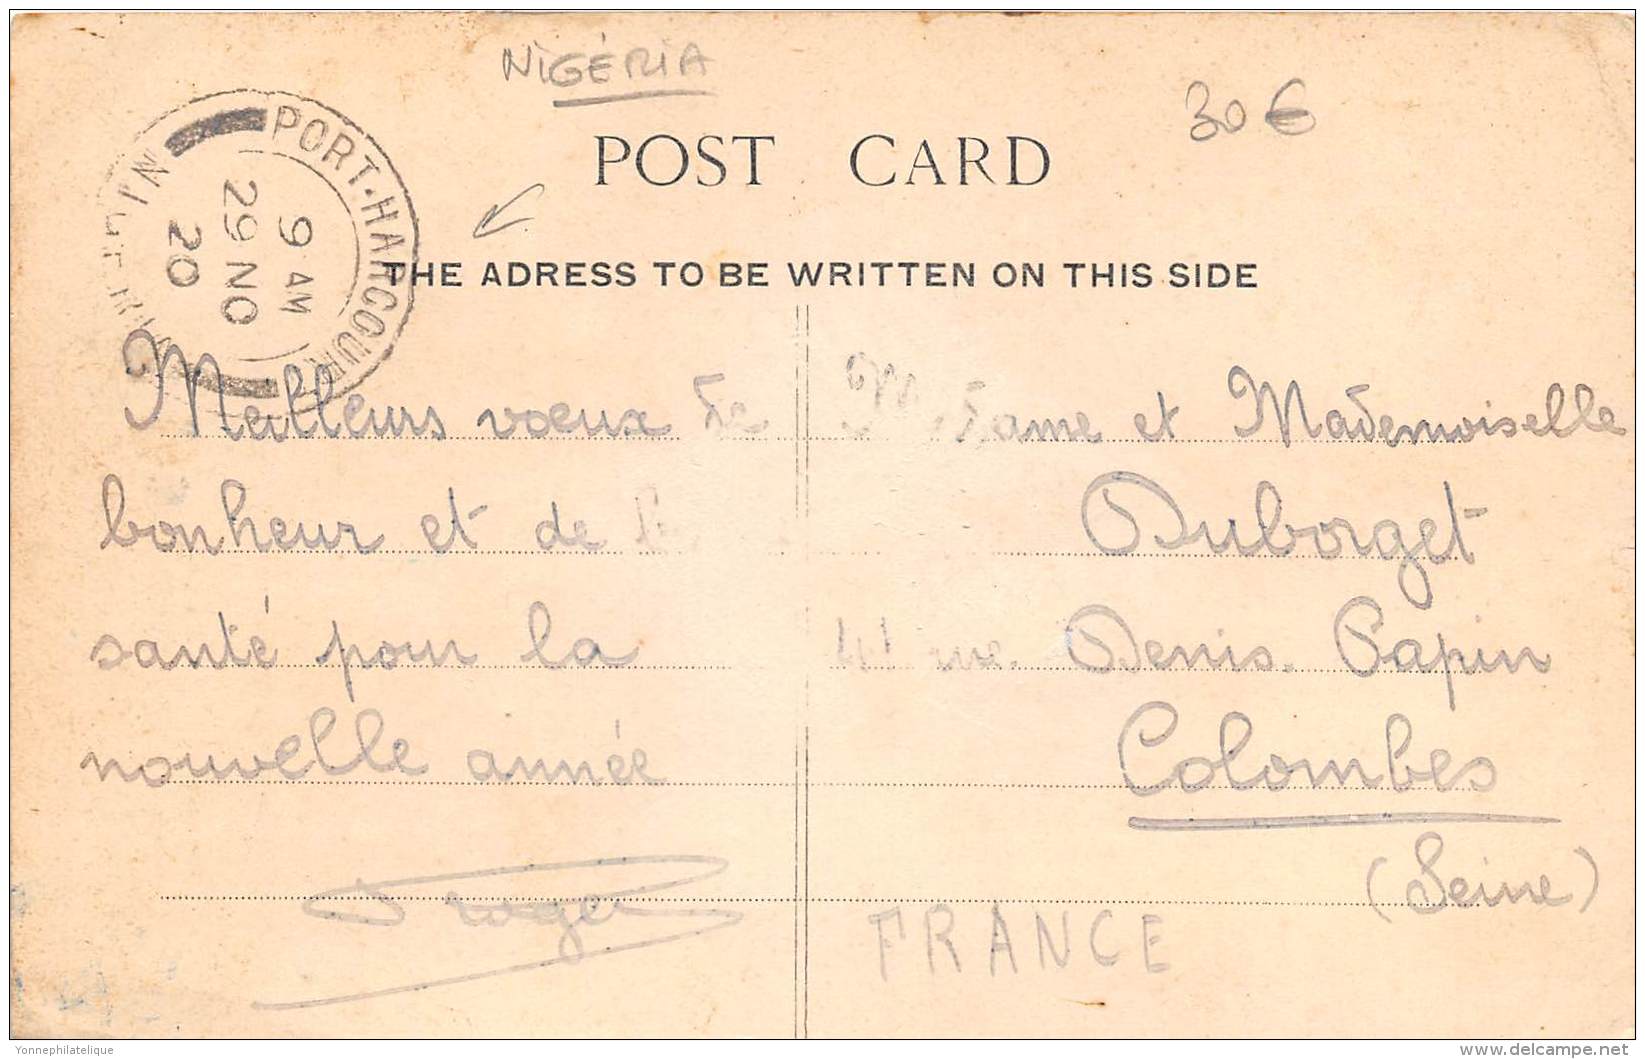 NIGÉRIA
30€
POST CARD
PORT·HARCOURT
9 AM
29 NO
20
THE ADRESS TO BE WRITTEN ON THIS SIDE
Meilleurs voeux de
bonheur et de
santé pour la
nouvelle année
Madame et Mademoiselle
Duborget
41 rue Denis Papin
Colombes
(Seine)
FRANCE
Yonnephilatelique
www.delcampe.net